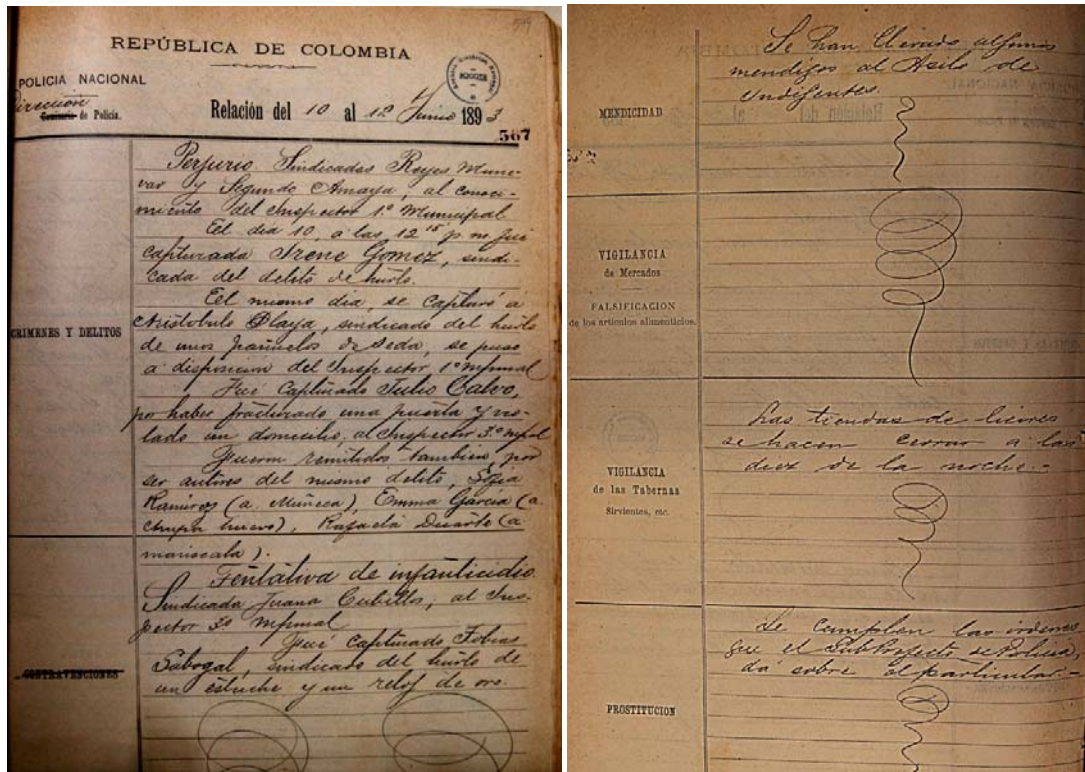 REPÚBLICA DE COLOMBIA
POLICIA NACIONAL
Dirección
Comisaría de Policía.
Relación del 10 al 12 Junio 1893
567
Perjurio Sindicados Reyes Mune-
var y Segundo Amaya, al conoci-
miento del Inspector 1º Municipal
El dia 10, a las 12 15 p m fué
capturada Irene Gomez, sindi-
cada del delito de hurto.
El mismo dia, se capturó á
Aristobulo Olaya, sindicado del hurto
CRIMENES Y DELITOS
de unos pañuelos de seda, se puso
a disposicion del Inspector 1º mpmal
Fué capturado Julio Calvo,
por haber fracturado una puerta y vio-
lado un domicilio, al Inspector 3º mpal
Fueron remitidos tambien por
ser autores del mismo delito, Sofia
Ramirez (a. Muñeca), Emma García (a.
Chupa huevo), Rafaela Duarte (a
mariscala).
Tentativa de infanticidio.
Sindicada Juana Cubillos, al Ins-
pector 3º mpmal
Fué capturado Tobias
Sabogal, sindicado del hurto de
CONTRAVENCIONES
un estuche y un reloj de oro.
Se han llevado algunos
mendigos al Asilo de
Indigentes.
MENDICIDAD
VIGILANCIA
de Mercados
FALSIFICACION
de los artículos alimenticios.
Las tiendas de licores
se hacen cerrar a las
diez de la noche.-
VIGILANCIA
de las Tabernas
Sirvientes, etc.
Se cumplen las ordenes
que el SubPrefecto de Policia,
dá sobre el particular.-
PROSTITUCION